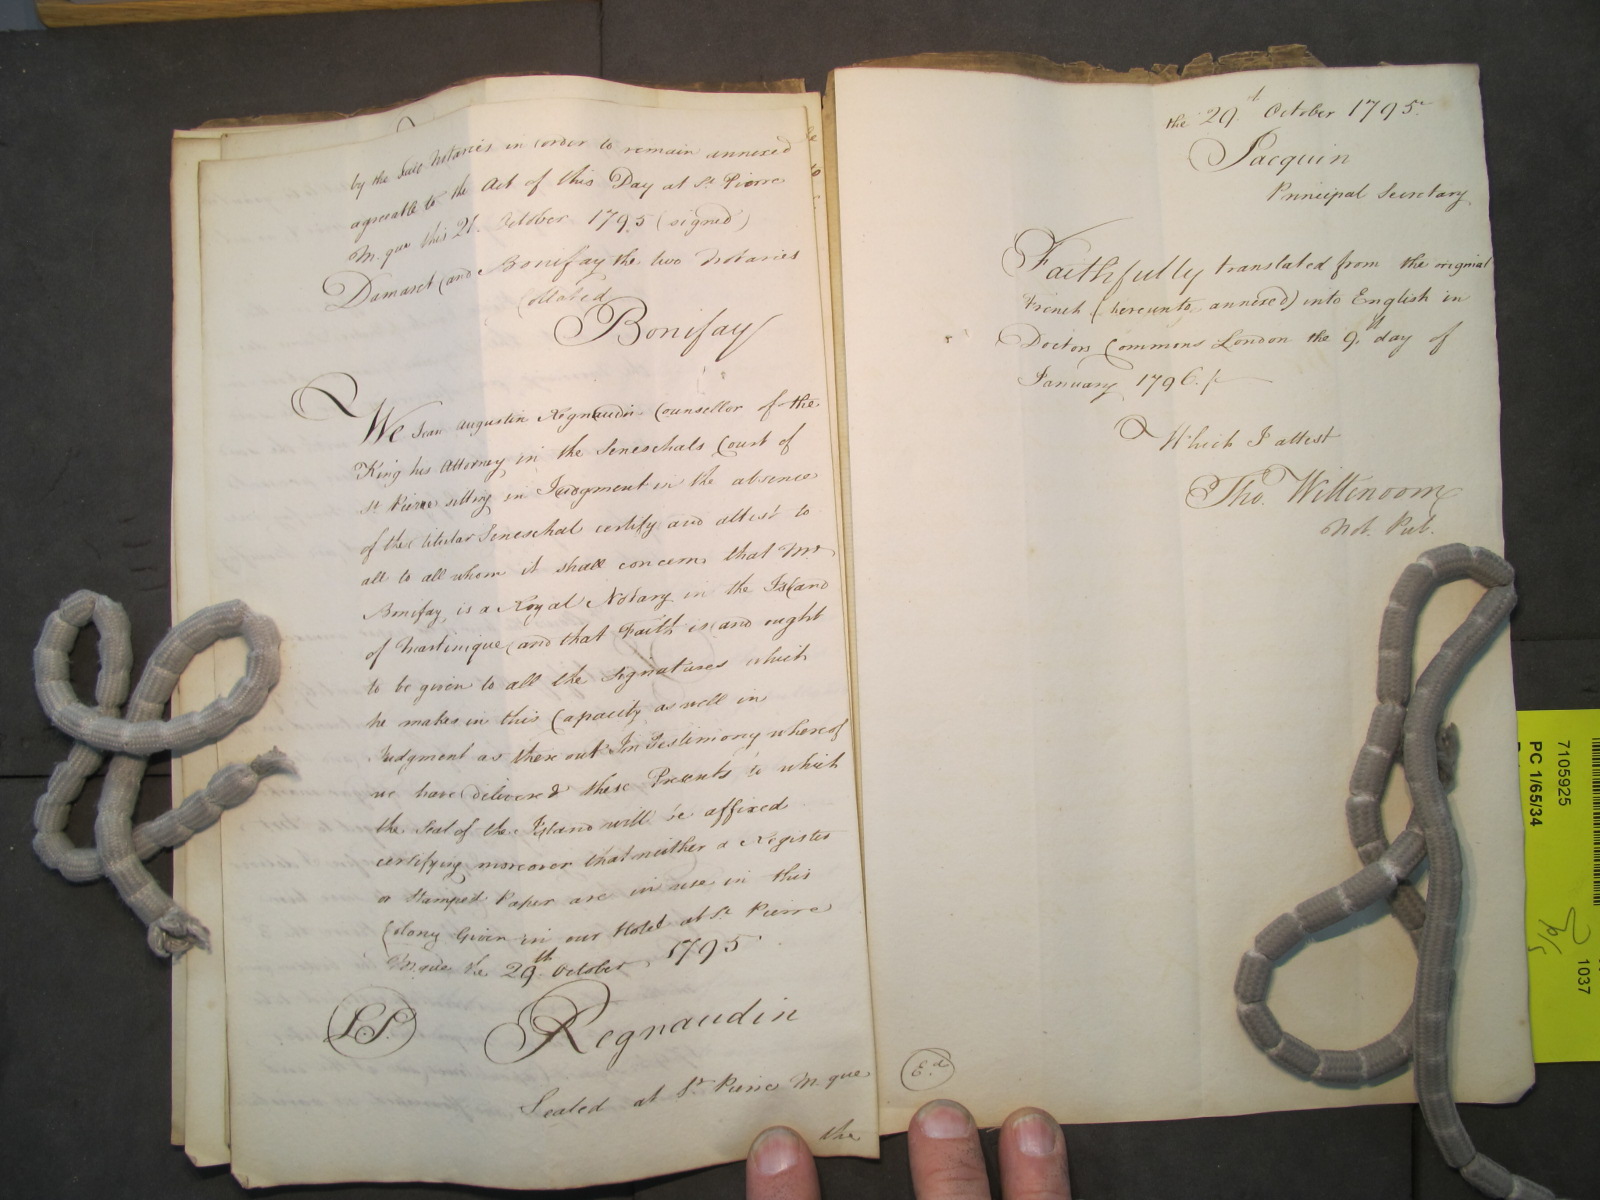 by the said Notaries in order to remain annexed
agreeable to the Act of this Day at St. Pierre
M.que this 21. October 1795 (signed)
Damaret and Bonifay the two Notaries
Collated
Bonifay
We Jean Augustin Regnaudin Counsellor of the
King his Attorney in the Seneschals Court of
St. Pierre sitting in Judgment in the absence
of the titular Seneschal certify and attest to
all to all whom it shall concern that Mr.
Bonifay is a Royal Notary in the Island
of Martinique and that Faith is and ought
to be given to all the Signatures which
he makes in this Capacity as well in
Judgment as there out In Testimony whereof
we have delivered these Presents to which
the Seal of the Island will be affixed
certifying moreover that neither a Register
or Stamped Paper are in use in this
Colony Given in our Hotel at St. Pierre
M.que the 29th. October 1795
LS. Regnaudin
Sealed at St. Pierre M.que
the
the 29th. October 1795
Jacquin
Principal Secretary
Faithfully translated from the original
French (hereunto annexed) into English in
Doctors Commons London the 9th day of
January 1796.
Which I attest
Tho. Wittenoom
Not. Pub.
Ed.
7105925
PC 1/65/34
1037